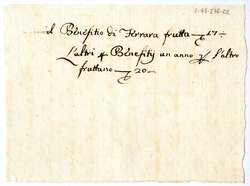 2-49-246-02
il Benefitio di Ferrara frutta 17
L'altri Benefitij un anno L'altro
fruttano 20